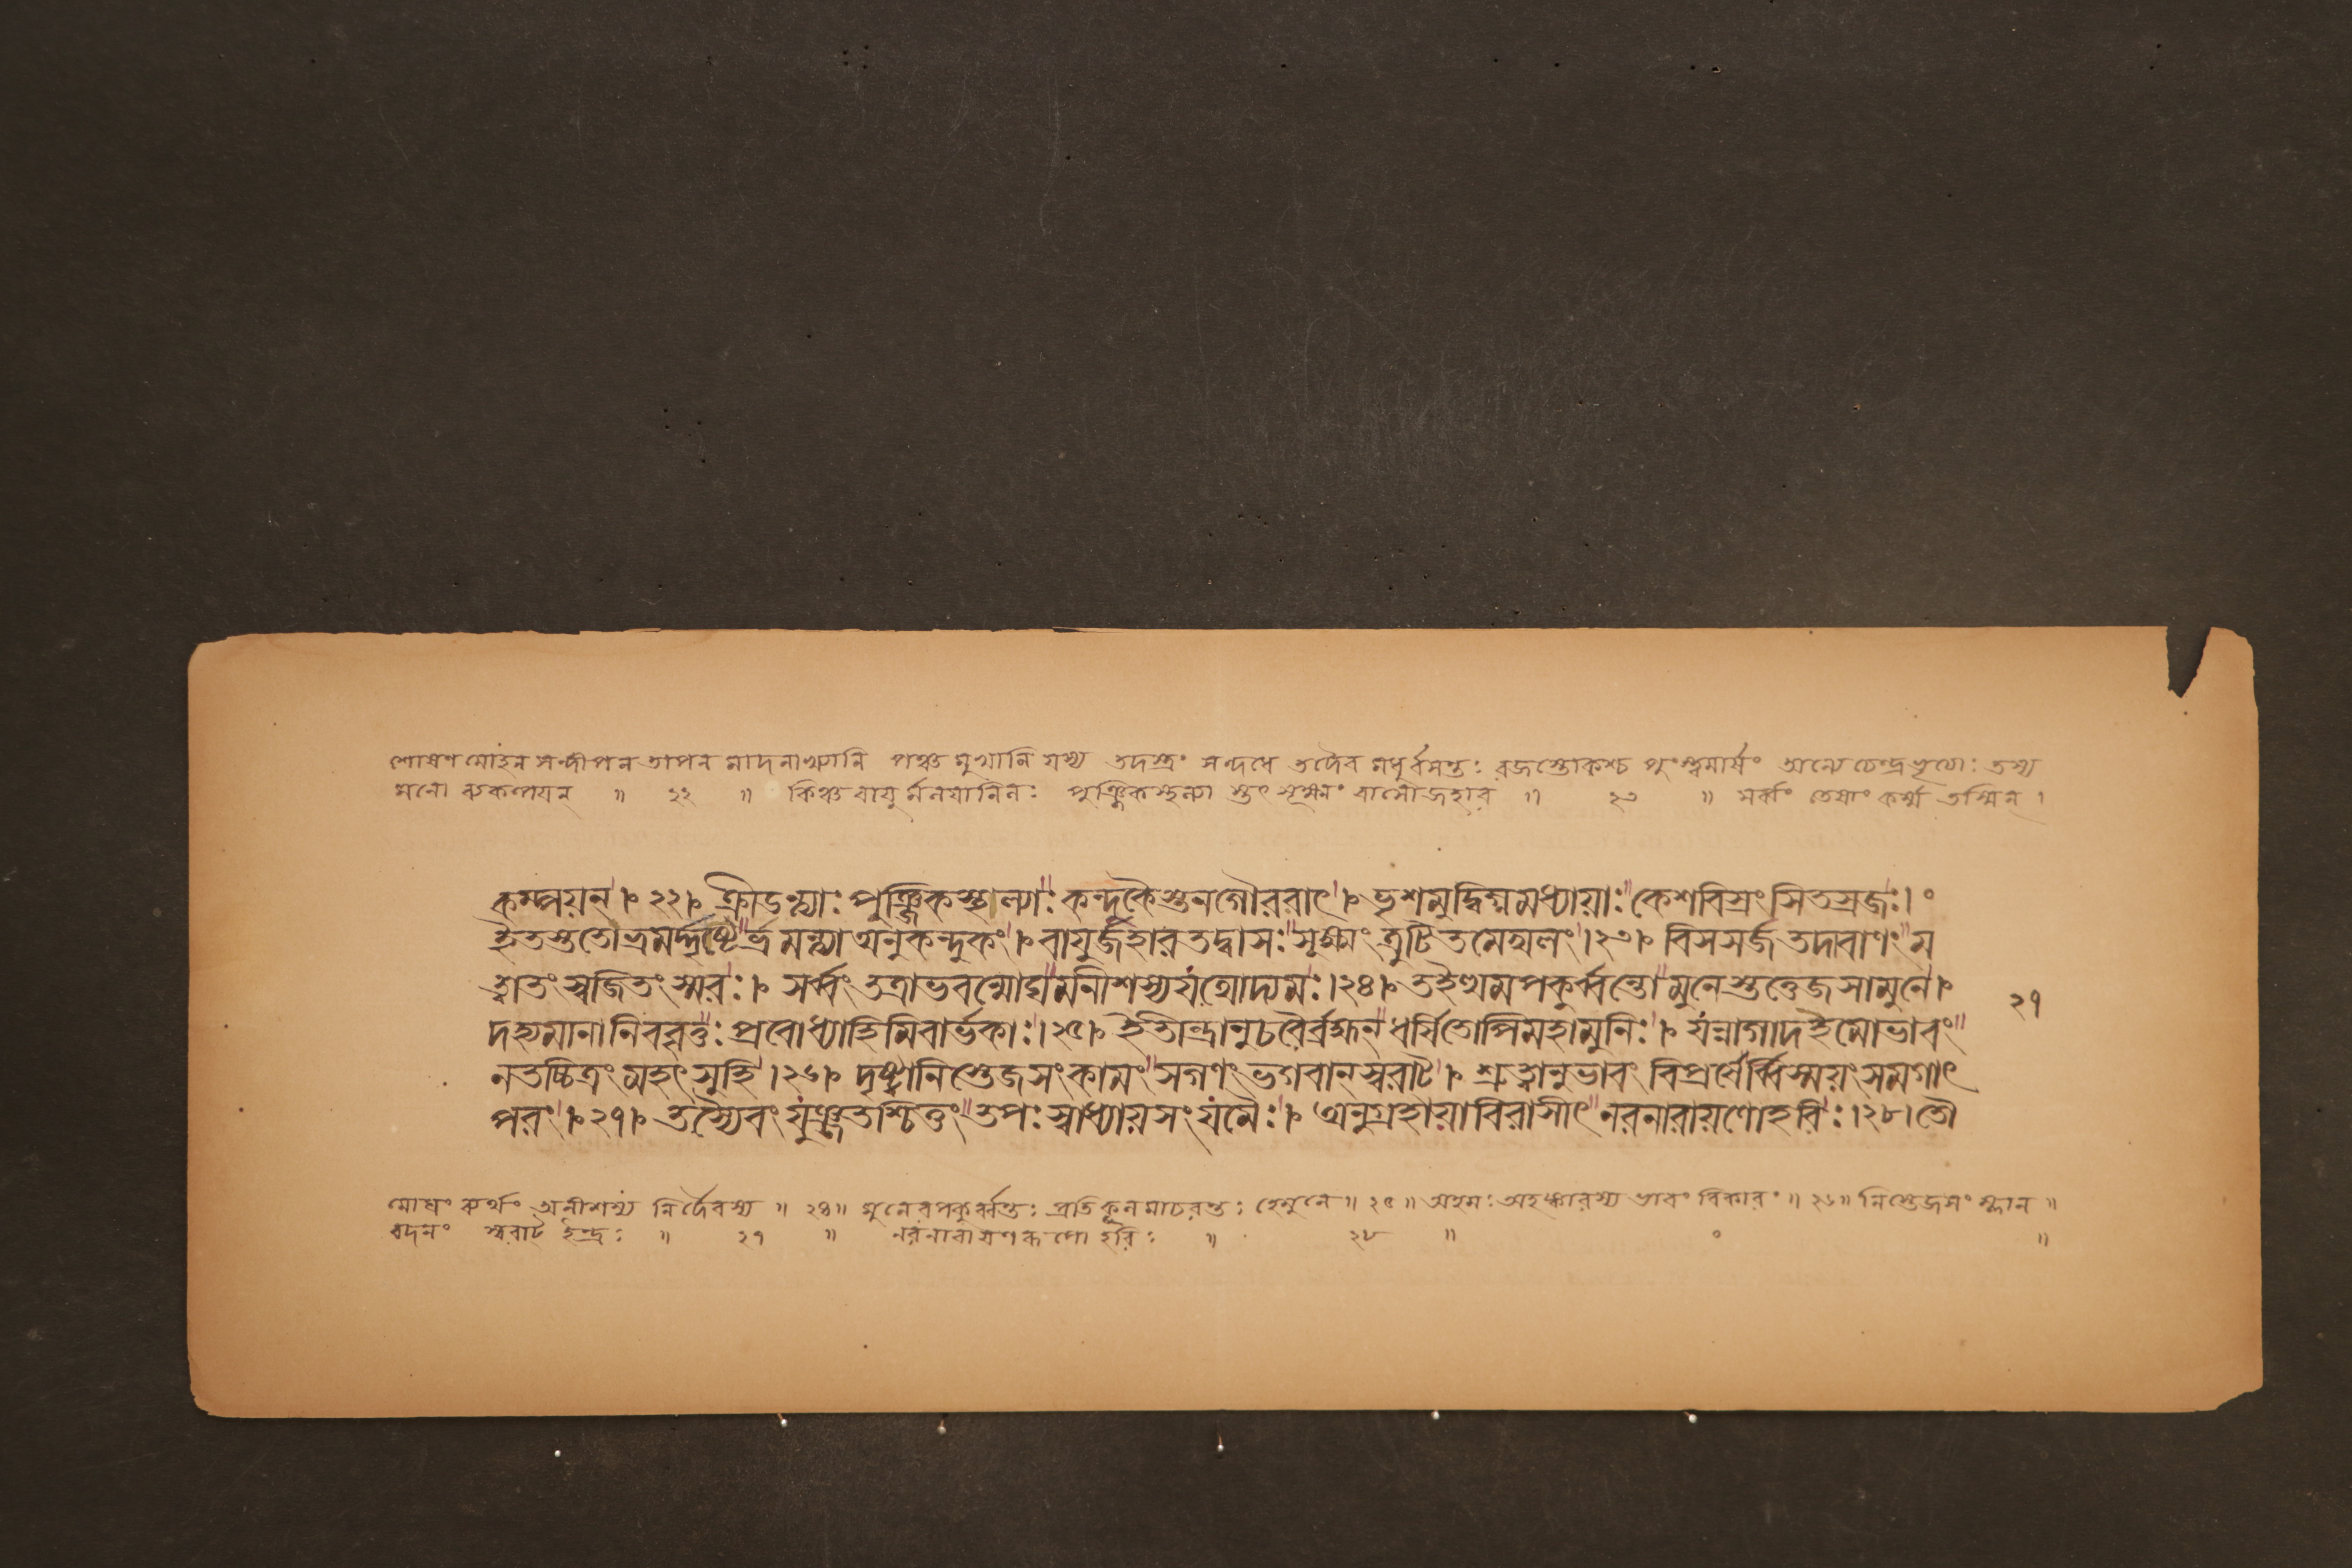 শোষণ মোহন সন্দীপন তাপন মাদনাখ্যানি পঞ্চ মুখানি যস্য তদস্ত্রং সন্দধে তদৈব মধুর্বসন্তঃ রজস্তোকশ্চ পুংস্ত্বমার্ষং অন্যে চেন্দ্রভৃত্যাঃ তস্য
মনো ব্যকম্পয়ন্ ॥ ২২ ॥ কিঞ্চ বায়ু পুঞ্জিকস্থল্যা স্তৎ সূক্ষ্মং বাসোজহার ॥ ২৩ ॥ সর্ব্বং তেষাং কর্ম্ম তস্মিন্ ।
কম্পয়ন্ । ২২। ক্রীডন্ত্যাঃ পুঞ্জিকস্থাল্যাঃ কন্দুকৈস্তনগৌরবাৎ । ভৃশমুদ্বিগ্নমধ্যায়াঃ কেশবিস্রংসিতস্রজঃ । ०
ইতস্ততোভ্রমদ্দৃষ্টের্ভ্রমন্ত্যা অনুকন্দুকং । বায়ুর্জহার তদ্বাসঃ সূক্ষ্মং ত্রুটিতমেখলং ।২৩। বিসসর্জ তদাবাণং ম
ত্বাতং স্বজিতং স্মরঃ । সর্ব্বং তত্রাভবন্মোঘমনীশস্যযথোদ্যমঃ ।২৪। তইত্থমপকুর্ব্বন্তো মুনেস্তত্তেজসামুনে ।
দহ্যমানানিববৃত্তুঃ প্রবোধ্যাহিমিবার্ভকাঃ ।২৫। ইতীন্দ্রানুচরৈর্ব্রহ্মন্ ধর্সিতোপিমহামুনিঃ । যন্নাগাদহমোভাবং
নতচ্চিত্রং মহৎসুহি ।২৬। দৃষ্ট্বানিস্তেজসংকামং সগণং ভগবান্স্বরাট্ । শ্রুত্বানুভাবং বিপ্রর্ষের্ব্বিস্ময়ং সমগাৎ
পরং । ২৭। তস্যৈবং যুঞ্জতশ্চিত্তং তপঃ স্বাধ্যায়সংযমৈঃ । অনুগ্রহায়াবিরাসীৎ নরনারায়ণোহরিঃ ।২৮। তৌ
২৭
মোঘং ব্যর্থং অনীশস্য নির্দৈবস্য ॥ ২৪ ॥ মুনেরপকুর্ব্বন্তঃ প্রতিকূলমাচরন্তঃ হেমুনে ॥ ২৫ ॥ অহমঃ অহঙ্কারস্য ভাবং বিকারং ॥ ২৬ ॥ নিস্তেজসং ম্লান ॥
বদনং স্বরাট্ ইন্দ্রঃ ॥ ২৭ ॥ নরনারায়ণরূপো হরিঃ ॥ ২৮ ॥ ० ॥